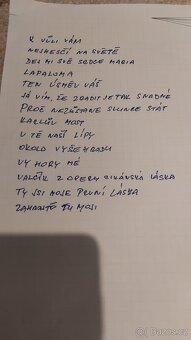 K VŮLI VÁM
NEJHEZČÍ NA SVĚTĚ
DEJ MI SVÉ SRDCE MARIA
LAPALOMA
TEN ÚSMĚV VÁŠ
JÁ VÍM, ŽE ZRADIT JE TAK SNADNÉ
PROČ NEZŮSTANE SLUNCE STÁT
KARLŮV MOST
U TÉ NAŠÍ LÍPY
OKOLO VYŠEHRADU
VY HORY MÉ
VALČÍK Z OPERY CIKÁNSKÁ LÁSKA
TY JSI MOJE PRVNÍ LÁSKA
TY MOJI
Bazoš.cz